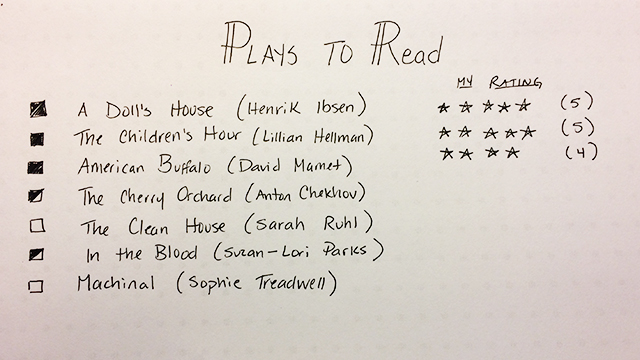 Plays to Read
My Rating
A Doll's House (Henrik Ibsen) ★★★★★ (5)
The Children's Hour (Lillian Hellman) ★★★★★ (5)
American Buffalo (David Mamet) ★★★★ (4)
The Cherry Orchard (Anton Chekhov)
The Clean House (Sarah Ruhl)
In the Blood (Suzan-Lori Parks)
Machinal (Sophie Treadwell)